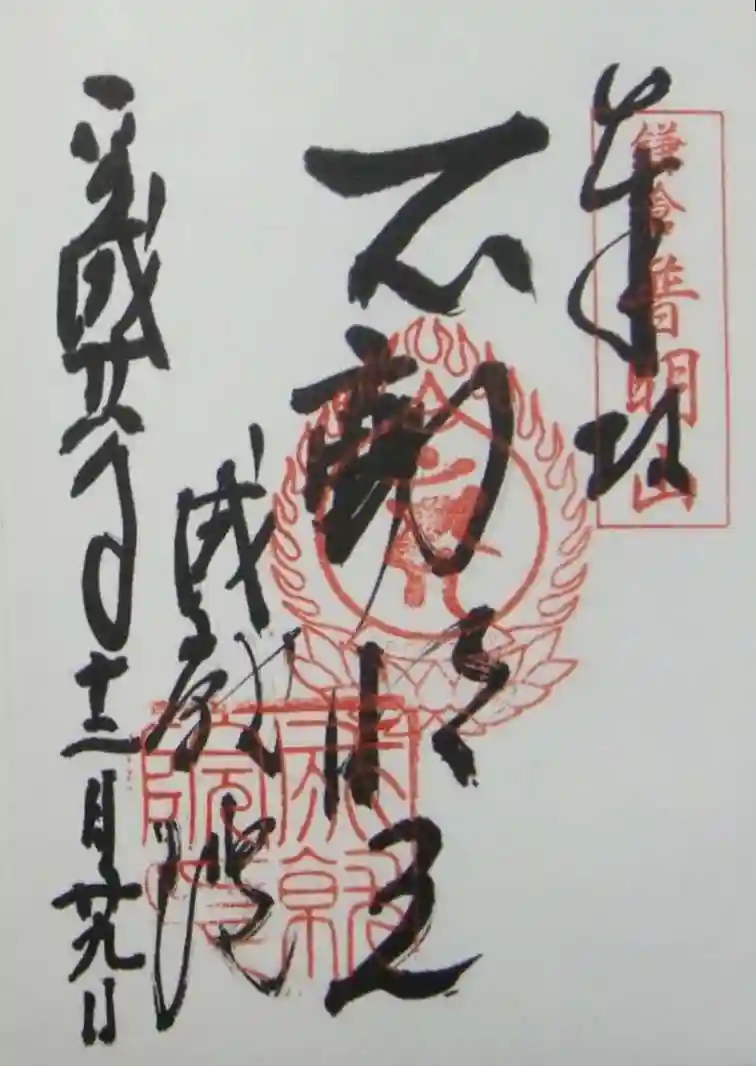 鎌倉普明山
奉拝
不動明王
成就院
成就院印
平成廿六年十二月廿九日